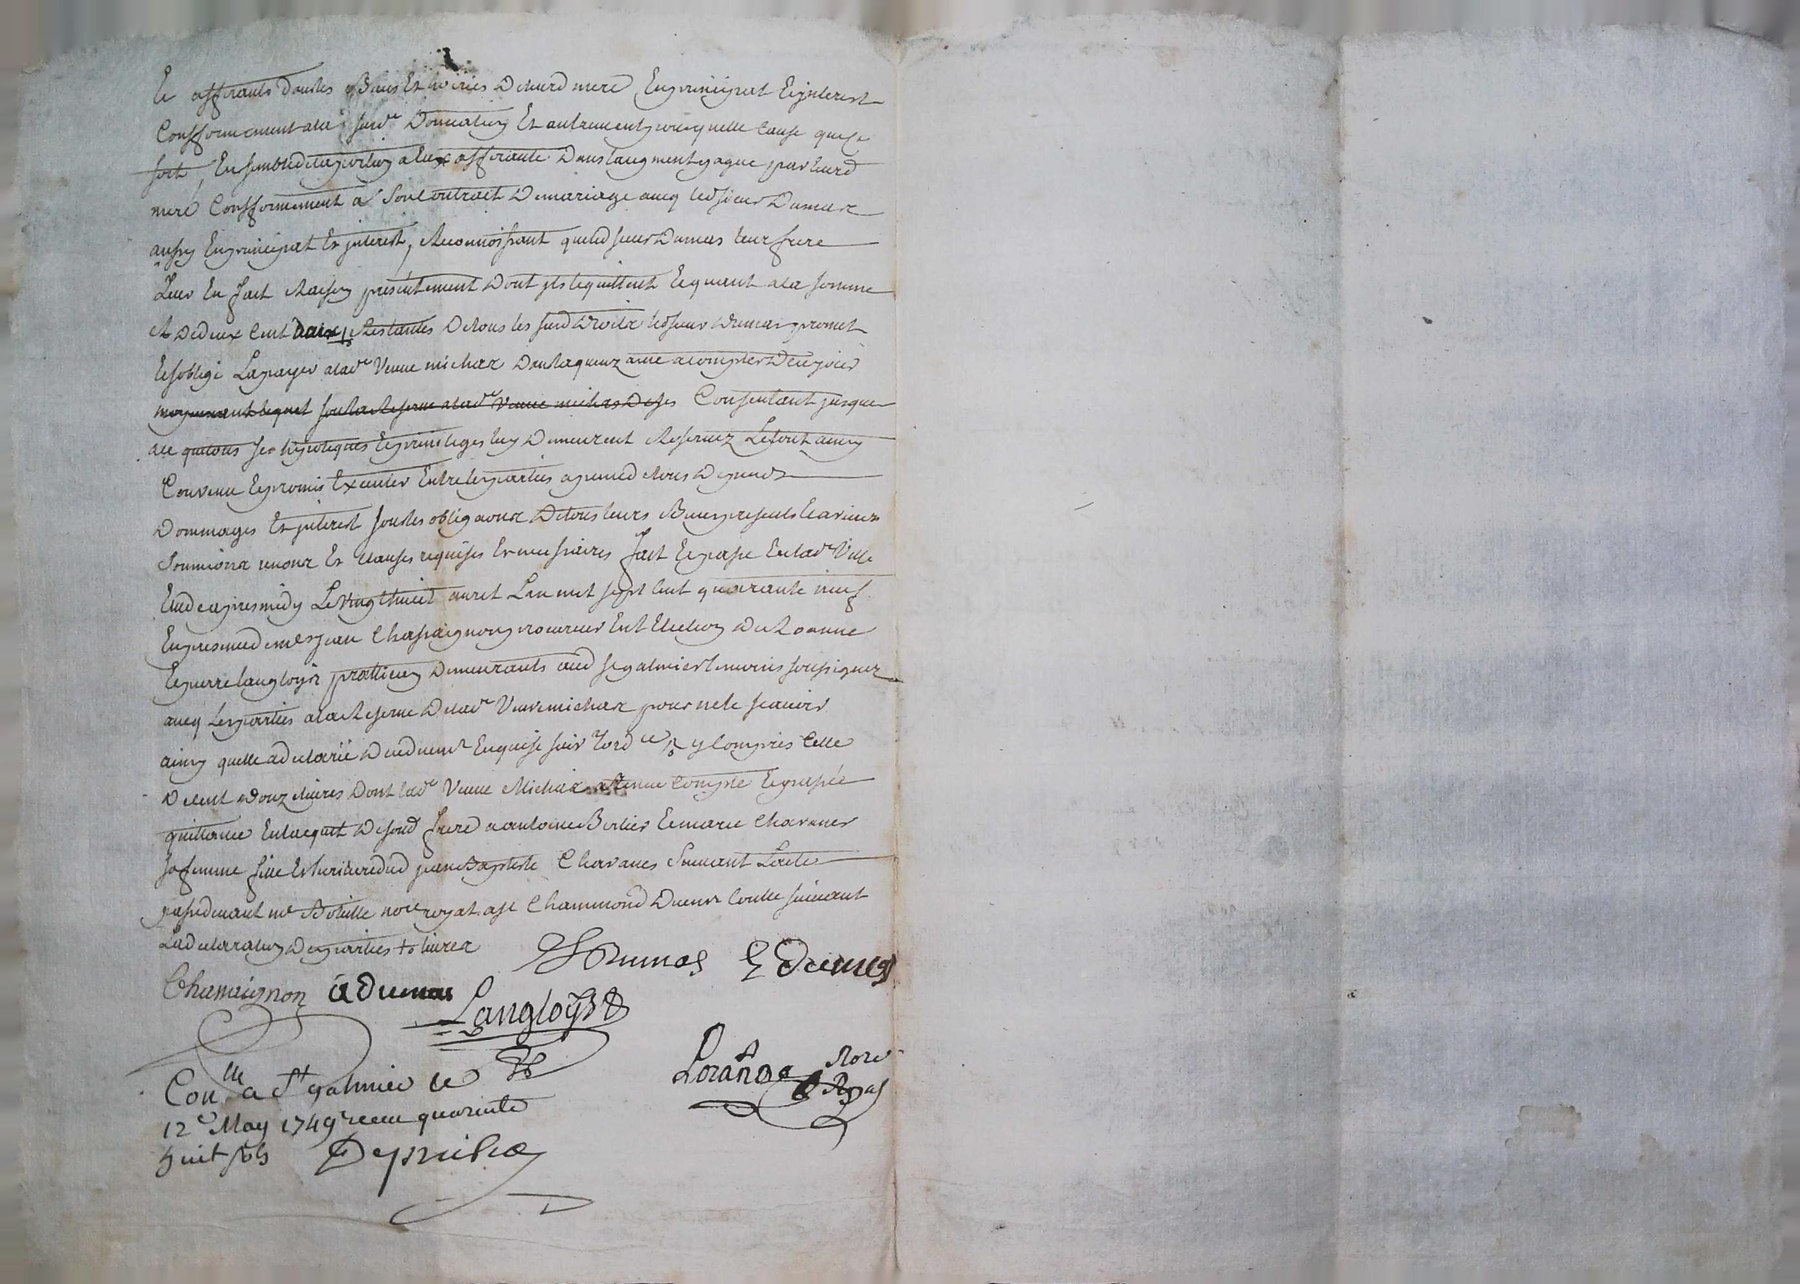 et afferants dans les Biens Et hoiries De leurd mere, En principal Et jnterest
Confformement a la susd.e Donnation Et autrement pour quelle Cause que ce
soit, Ensemble de la portion a Eux afferante Dans l'augment gagné par leurd
mere Confformement a son Contract De mariage avec led sieur Dumas
aussy En principal Et jnterest, Reconnoissant que led sieur Dumas leur frere
Leur En fait Raison presentement Dont jls le quittent Et quant a la somme
De deux Cent Restantes De tous les susd Droits led sieur Dumas promet
Et s'oblige La payer a lad.e Veuve michas Dans a compter De ce jour
moyennant lequel sous la Reserve a lad.e Veuve michas De ses Consentant jusques
a ce que tous ses hypoteques Et privileges luy Demeurent Reservez Le tout ainsy
Convenu Et promis Executer Entre les parties a peine de tous Depends
Dommages Et jnterest sous les obligaons De tous leurs Biens presents Et avenir
Soumions renons Et Clauses requises Et necessaires fait Et passé En lad.e Ville
Etude apres midy Le vingt huict avril L'an mil sept Cent quarante neuf
En presence de me jean Chassaignon procureur En L'Election De Roanne
Et pierre langlois praticien Demeurants aud St galmier temoins soussignez
avec Les parties a la Reserve De lad.e Veuve michas pour ne le scavoir
ainsy quelle a declaré De ce Enquise suiv. l'ord. y Compris Celle
De Cent Douze livres Dont lad.e Veuve Michas a tenu Compte Et passé
quittance En l'acquit De sond frere a antoine Berlier Et marie Chavanes
sa femme fille Et heritiere de jean Baptiste Chavanes suivant L'acte
passé devant me not.e royal a St Chammond suivant
La declaration Des parties
Dumas Dumas
Chassaignon a dumas
Langlois
Lorange Not.e Royal
Con.lle a St galmier le
12e May 1749 receu quarante
huit sols